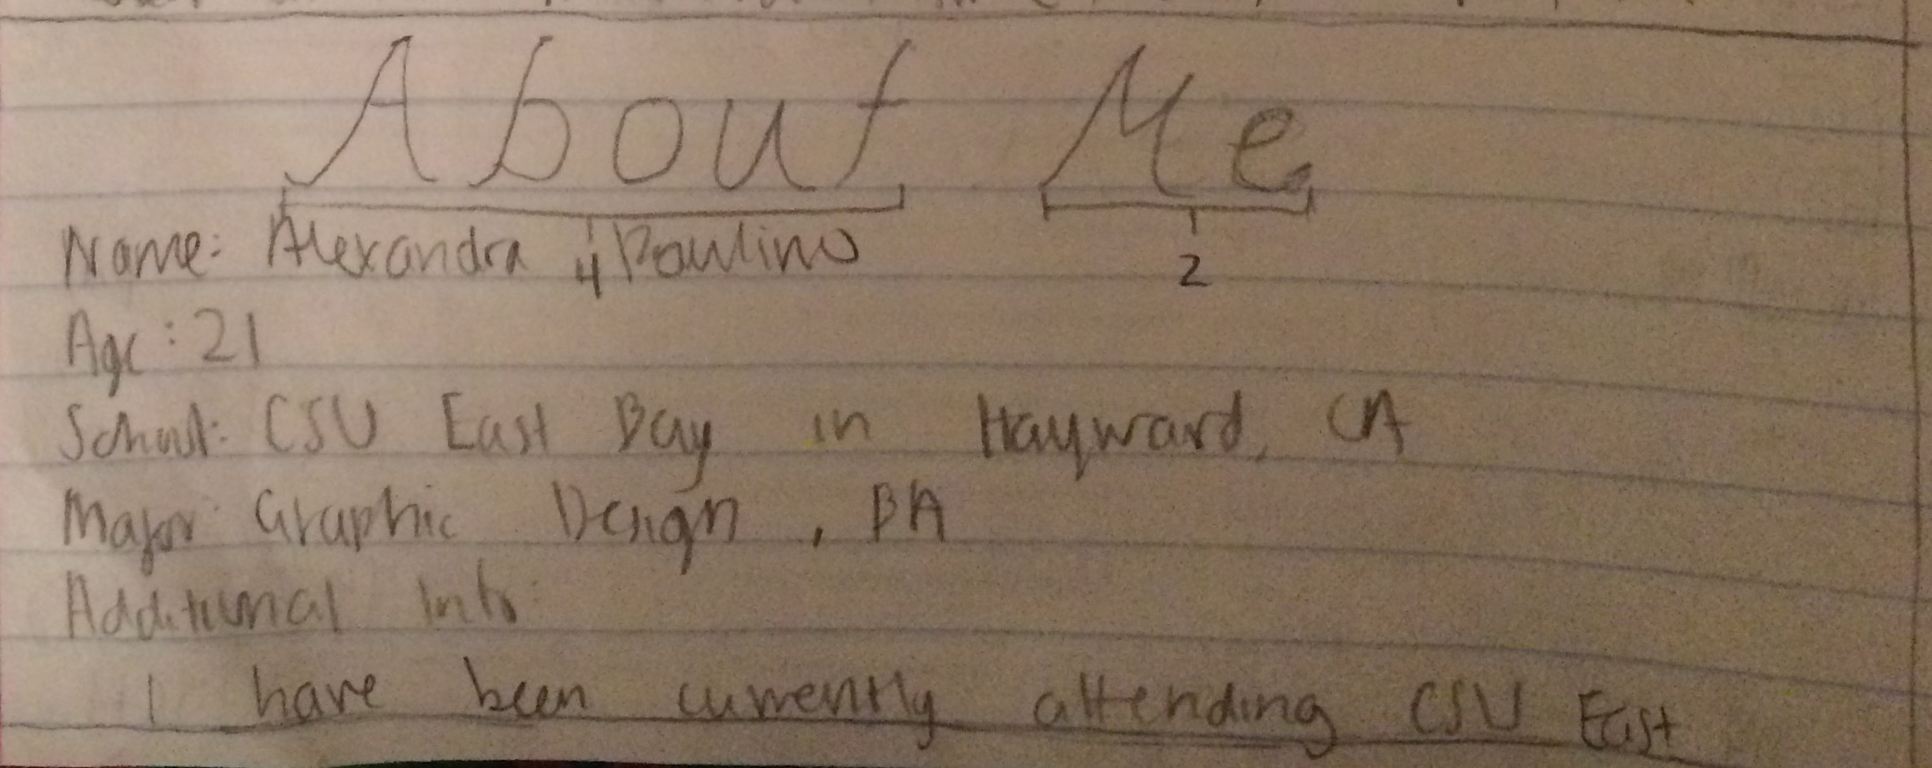 About Me
Name: Alexandra Paulino
4 2
Age: 21
School: CSU East Bay in Hayward, CA
Major: Graphic Design, BA
Additional Info:
I have been currently attending CSU East